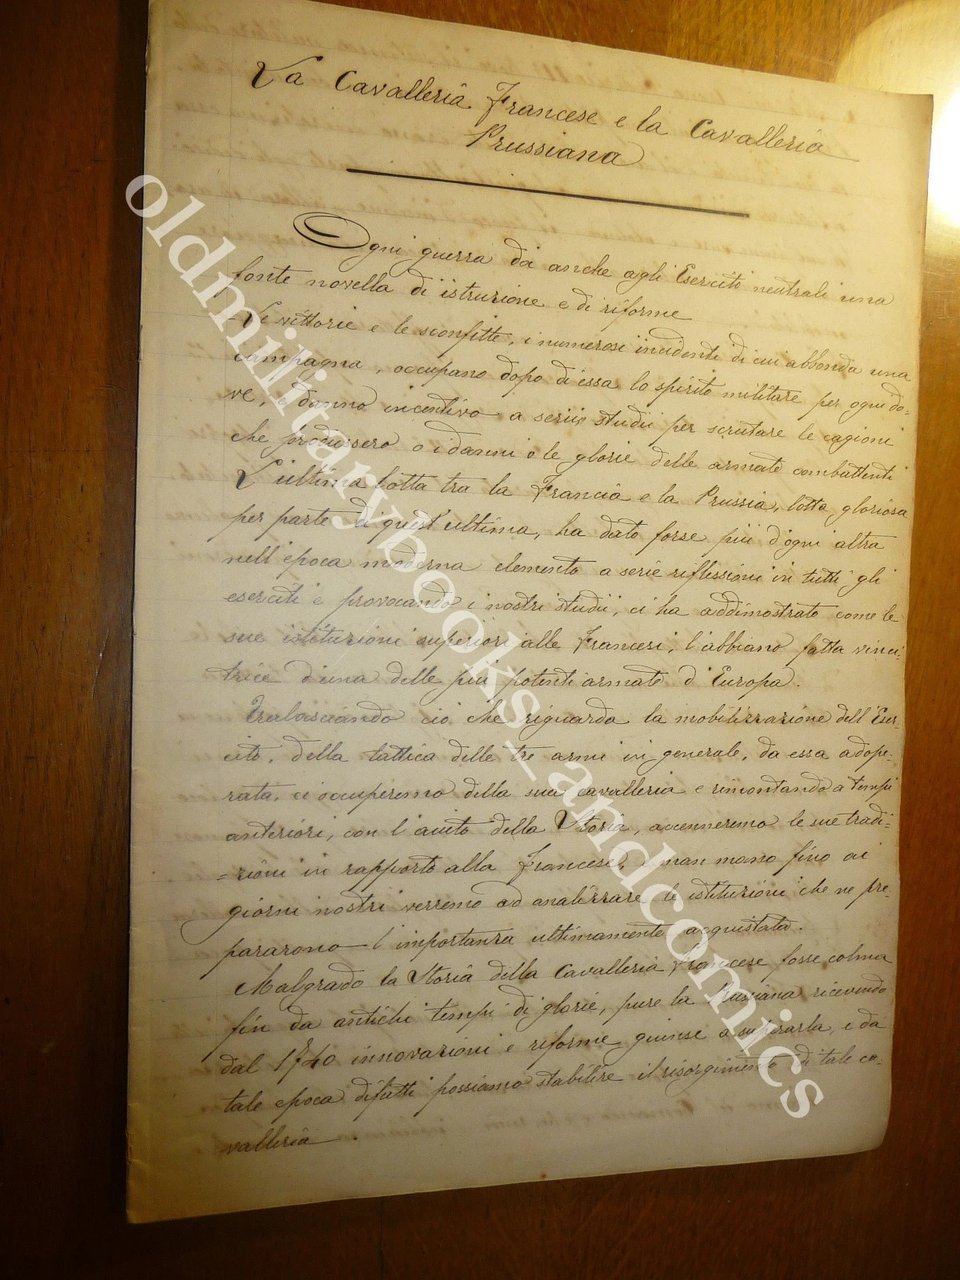 La Cavalleria Francese e la Cavalleria
Prussiana
Ogni guerra dà anche agli Eserciti neutrali una
fonte novella di istruzione e di riforme
Le vittorie e le sconfitte, i numerosi incidenti di cui abbonda una
campagna occupano dopo di essa lo spirito militare per ogni do-
ve, e danno incentivo a serii studii per scrutare le cagioni
che produssero o i danni o le glorie delle armate combattenti
L'ultima lotta tra la Francia e la Prussia, lotta gloriosa
per parte di quest'ultima, ha dato forse più d'ogni altra
nell'epoca moderna elemento a serie riflessioni in tutti gli
eserciti e provocando i nostri studii, ci ha addimostrato come le
sue istituzioni superiori alle Francesi, l'abbiano fatta vinci-
trice d'una delle più potenti armate d'Europa.
Tralasciando ciò che riguarda la mobilizzazione dell'Eser-
cito, della tattica delle tre armi in generale, da essa adope-
rata, ci occuperemo della sua cavalleria e rimontando a tempi
anteriori, con l'aiuto della Storia, accenneremo le sue tradi-
=zioni in rapporto alla Francese, e man mano fino ai
giorni nostri verremo ad analizzare le istituzioni che ne pre-
pararono l'importanza ultimamente acquistata.
Malgrado la Storia della Cavalleria Francese fosse colma
fin da antichi tempi di glorie, pure la Prussiana ricevendo
dal 1740 innovazioni e riforme giunse a superarla, e da
tale epoca difatti possiamo stabilire il risorgimento di tale ca-
valleria
oldmilitarybooks_andcomics